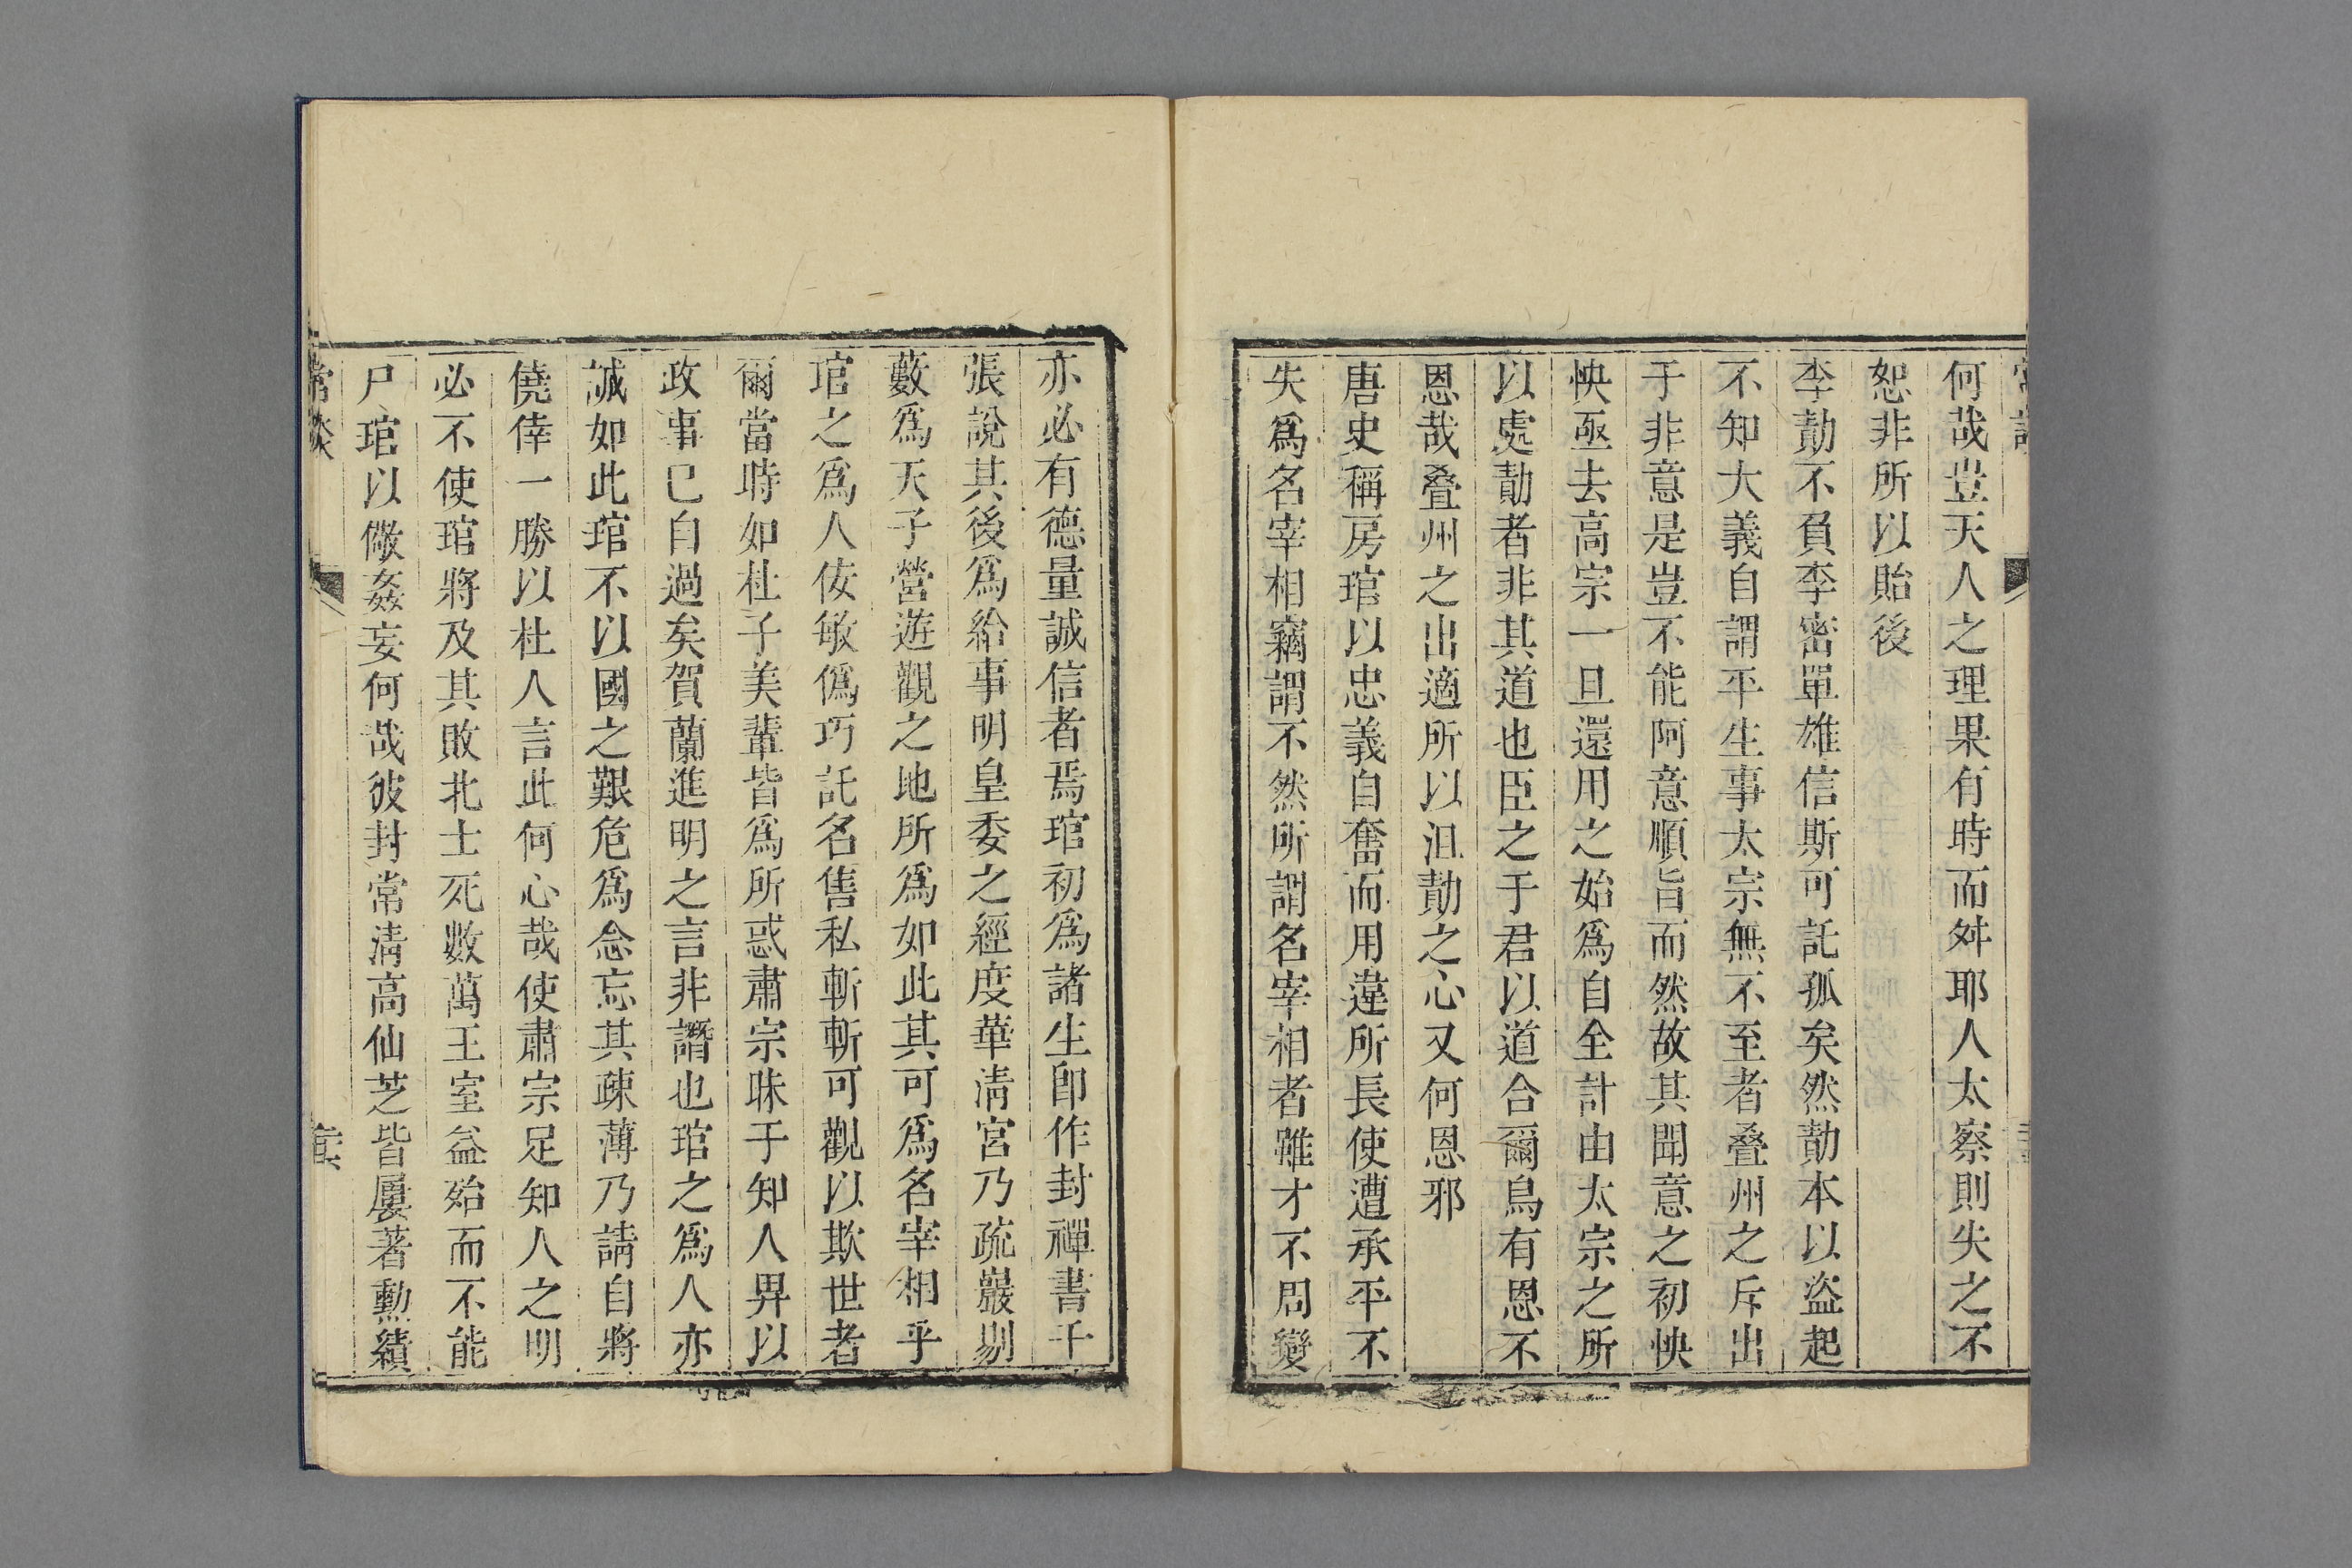 何哉豈天人之理果有時而舛耶人太察則失之不
恕非所以貽後
李勣不負李密單雄信斯可託孤矣然勣本以盜起
不知大義自謂平生事太宗無不至者叠州之斥出
于非意是豈不能阿意順旨而然故其聞意之初怏
怏亟去高宗一旦還用之始爲自全計由太宗之所
以處勣者非其道也臣之于君以道合爾烏有恩不
恩哉叠州之出適所以沮勣之心又何恩邪
唐史稱房琯以忠義自奮而用違所長使遭承平不
失爲名宰相竊謂不然所謂名宰相者雖才不周變
亦必有德量誠信者焉琯初爲諸生卽作封禪書千
張說其後爲給事明皇委之經度華清宮乃疏巖剔
藪爲天子營遊觀之地所爲如此其可爲名宰相乎
琯之爲人佞敏僞巧託名售私斬斬可觀以欺世者
爾當時如杜子美輩皆爲所惑肅宗昧于知人畀以
政事已自過矣賀蘭進明之言非譖也琯之爲人亦
誠如此琯不以國之艱危爲念忘其疎薄乃請自將
僥倖一勝以杜人言此何心哉使肅宗足知人之明
必不使琯將及其敗北士死數萬王室益殆而不能
尸琯以儆姦妄何哉彼封常清高仙芝皆屢著勳績
常談